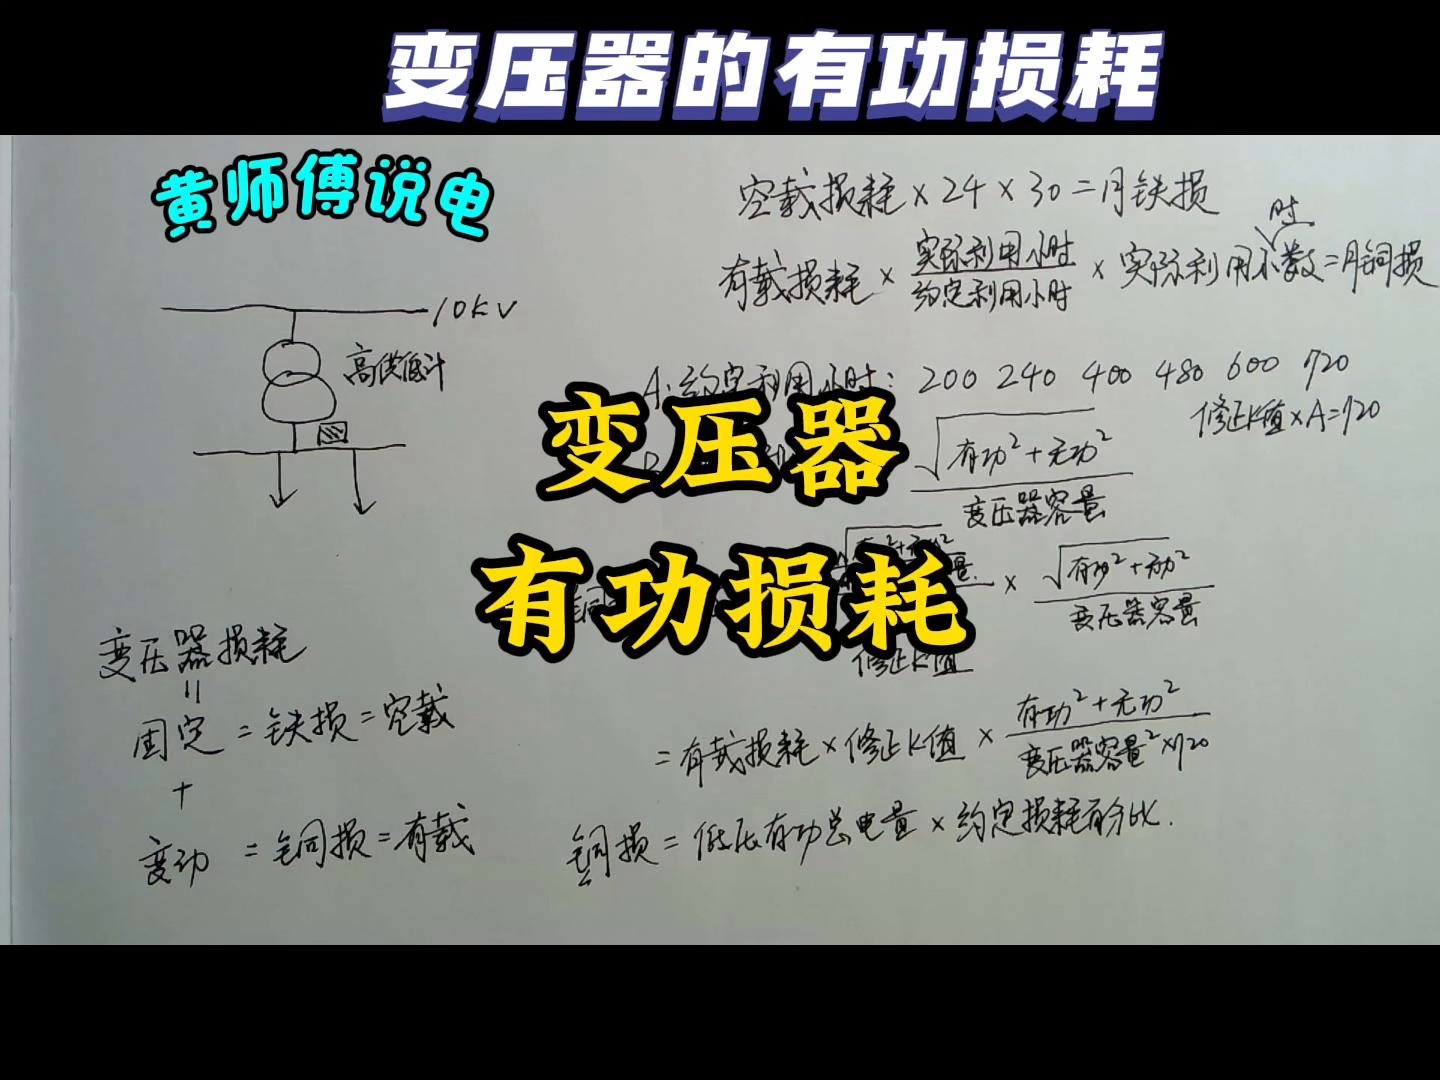 变压器的有功损耗
黄师傅说电
空载损耗×24×30=月铁损
时
有载损耗×实际利用小时/约定利用小时×实际利用小数=月铜损
10KV
高供低计
A:约定利用小时:200 240 400 480 600 720
修正K值×A=720
变压器
√有功²+无功²
变压器容量
有功损耗
×√有功²+无功²/变压器容量
修正K值
变压器损耗
=
固定=铁损=空载
+
变动=铜损=有载
=有载损耗×修正K值×有功²+无功²/变压器容量²×720
铜损=低压有功总电量×约定损耗百分比.